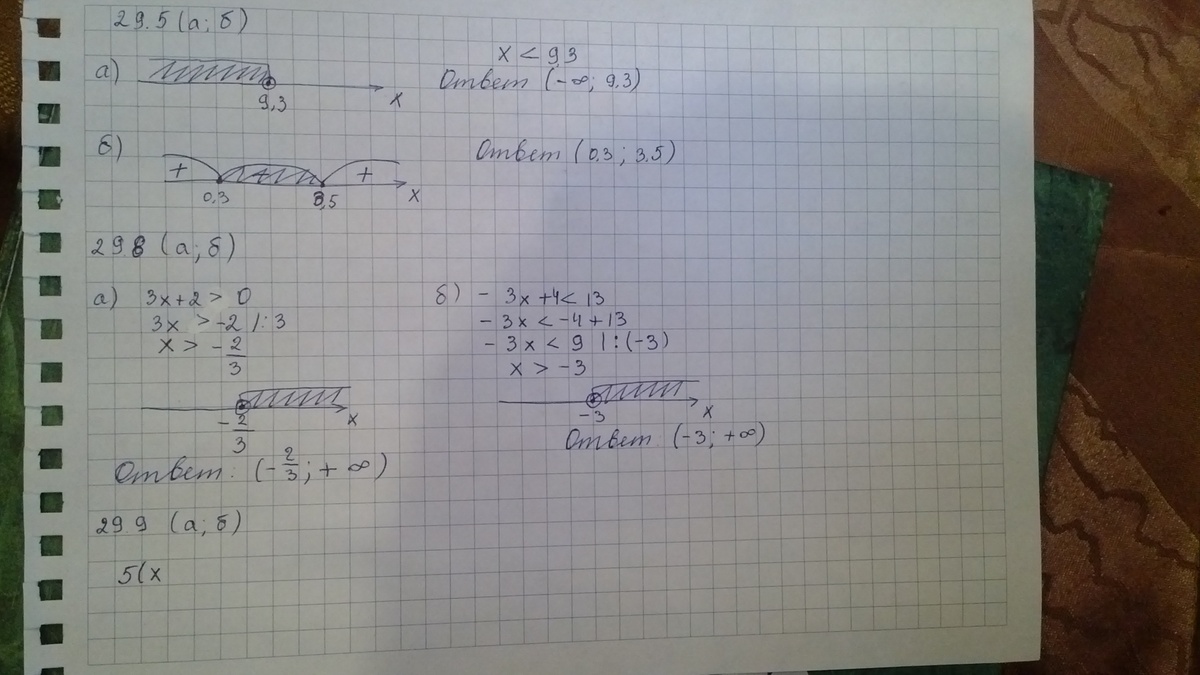 29.5 (а; б)
а) 9,3 x
x < 9,3
Ответ (-∞; 9,3)
б) + + + 0,3 3,5 x
Ответ (0,3; 3,5)
29.8 (а; б)
а) 3x+2 > 0
3x > -2 |: 3
x > -2/3
-2/3 x
Ответ: (-2/3; + ∞)
б) - 3x +4 < 13
- 3x < -4 + 13
- 3x < 9 | : (-3)
x > -3
-3 x
Ответ (-3; +∞)
29.9 (а; б)
5(x